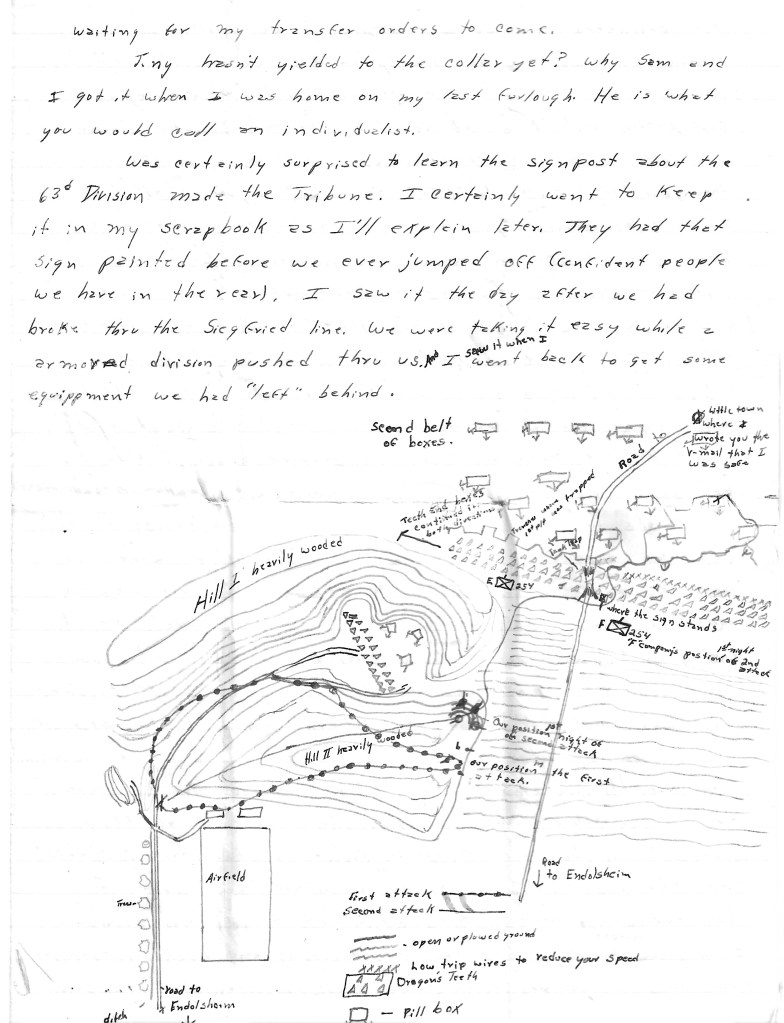 waiting for my transfer orders to come.
Tiny hasn't yielded to the collar yet? Why Sam and
I got it when I was home on my last furlough. He is what
you would call an individualist.
Was certainly surprised to learn the signpost about the
63d Division made the Tribune. I certainly want to keep
it in my scrapbook as I'll explain later. They had that
sign painted before we ever jumped off (confident people
we have in the rear). I saw it the day after we had
broke thru the Siegfried line. We were taking it easy while a
armored division pushed thru us. And I saw it when I went back to get some
equippment we had "left" behind.
second belt
of boxes.
little town
where I
wrote you the
v-mail that I
was safe
Road
Teeth and boxes
continued in
both directions
trapped
E 254
where the sign stands
F 254
"F" company's position 1st night of 2nd
attack
Hill I heavily wooded
Our position 1st night of
second attack
Hill II heavily wooded
our position in the first
attack.
Airfield
Trees
Road
to Endolsheim
First attack
second attack
- open or plowed ground
low trip wires to reduce your speed
Dragon's Teeth
- Pill box
road to
Endolsheim
ditch